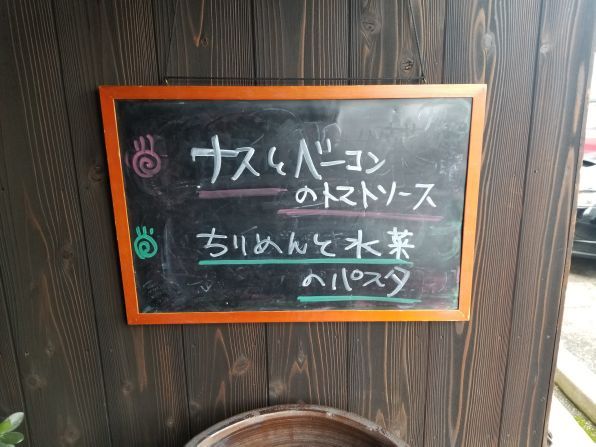 ナスとベーコン
のトマトソース
ちりめんと水菜
のパスタ